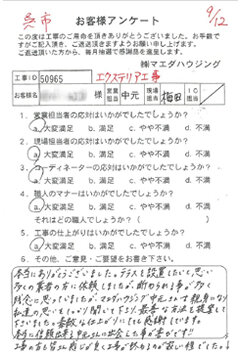 呉市
9/12
お客様アンケート
この度は工事のご用命を頂きありがとうございました。お手数で
すがご記入頂き、ご返送頂きますようお願い申し上げます。
ご返送頂いた方から、毎月抽選で感謝品を進呈します。
㈱マエダハウジング
工事ID 50965 エクステリア工事
お客様名 様 営業担当 中元 現場担当 梅田 IC担当
1．営業担当者の応対はいかがでしたでしょうか？
a.大変満足 b.満足 c.やや不満 d.不満
2．現場担当者の応対はいかがでしたでしょうか？
a.大変満足 b.満足 c.やや不満 d.不満
3．コーディネーターの応対はいかがでしたでしょうか？
a.大変満足 b.満足 c.やや不満 d.不満
4．職人のマナーはいかがでしたでしょうか？
a.大変満足 b.満足 c.やや不満 d.不満
それはどの職人でしょうか？（ ）
5．工事の仕上がりはいかがでしたでしょうか？
a.大変満足 b.満足 c.やや不満 d.不満
6．その他、ご意見・ご要望をお書き下さい。
本当にありがとうございました。テラスを設置したいと思い
多くの業者の方に依頼しましたが、断られる事が多く
残念に思っていましたが、マエダハウジング中元さんは親身になり
私達の思いをしっかり聞いて下さり、最善な方法を提案して
下さいました。素敵な仕上がりにとても感謝しています。
本当に信頼出来る中元さんに出会えた事が幸せです!!